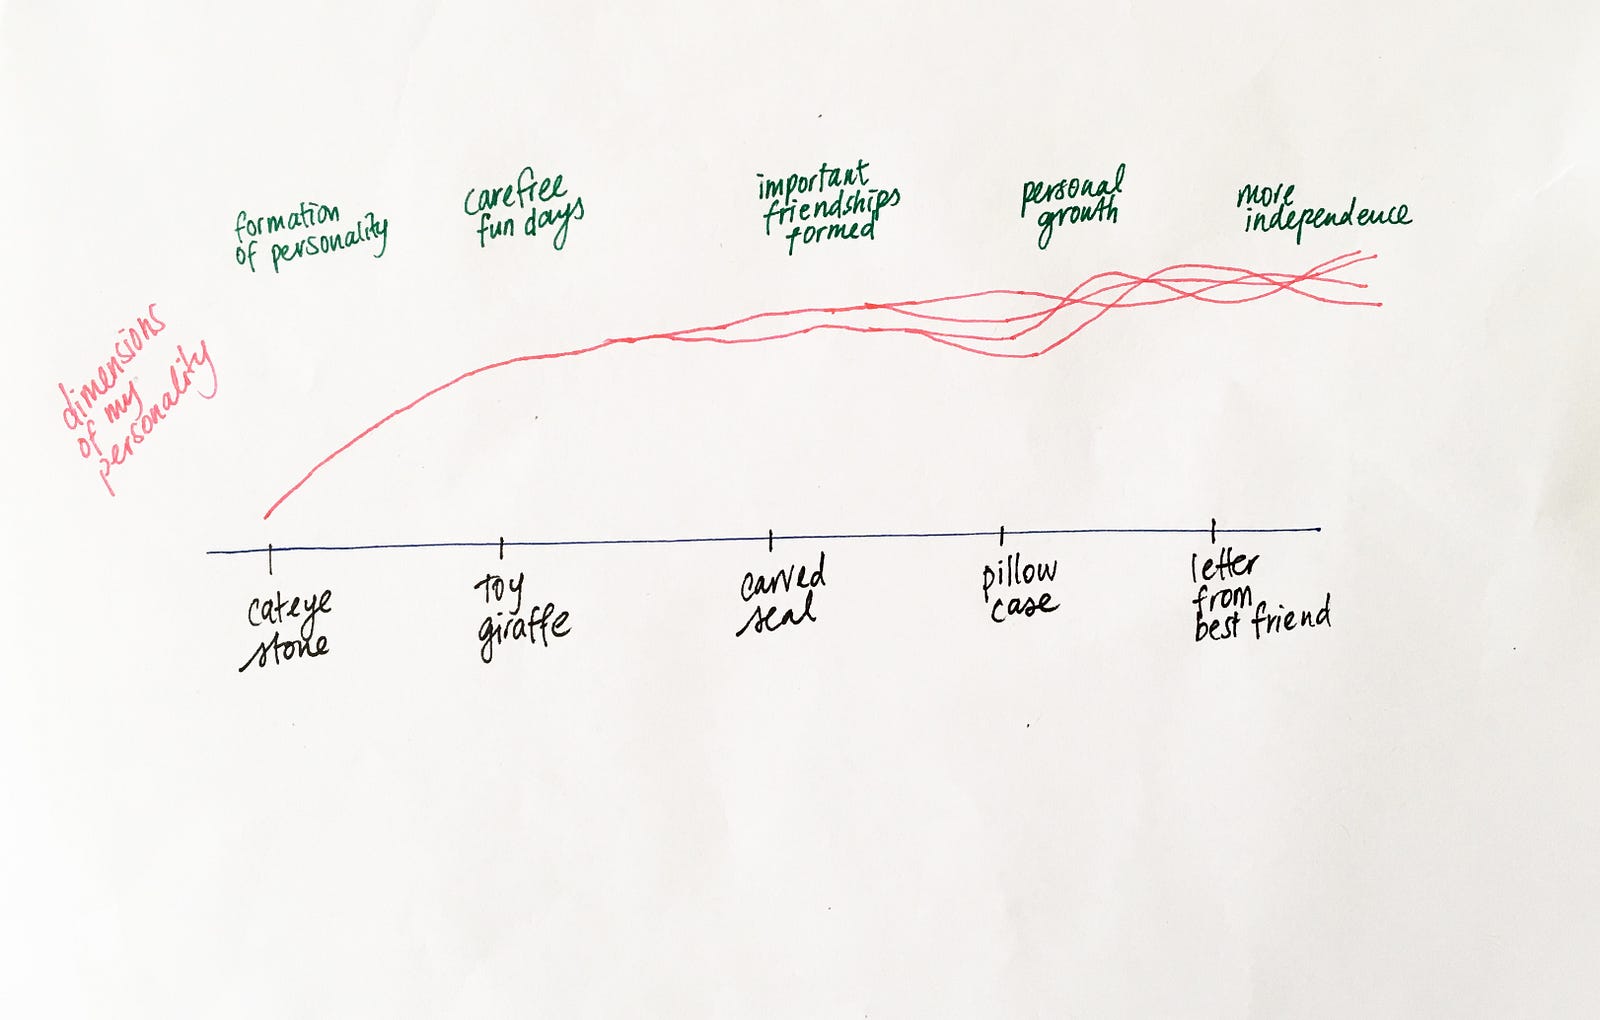 formation
of personality
carefree
fun days
important
friendships
formed
personal
growth
more
independence
dimensions
of my
personality
cateye
stone
toy
giraffe
carved
seal
pillow
case
letter
from
best friend